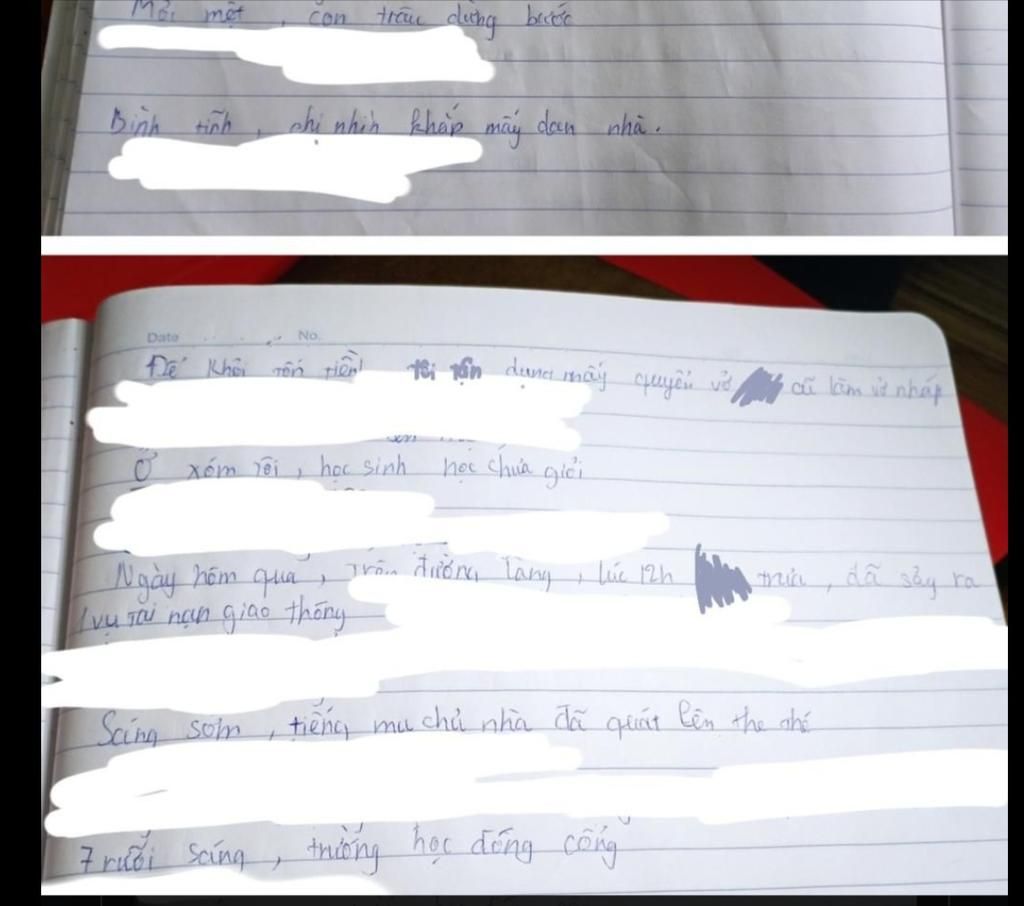 Mỏi mệt, con trâu dừng bước
Bình tĩnh, chị nhìn khắp mấy dan nhà.
Date No.
Để khỏi tốn tiền tôi tận dụng mấy quyển vở cũ làm vở nháp
Ở xóm tôi, học sinh học chưa giỏi
Ngày hôm qua, trên đường làng, lúc 12h trưa, đã sảy ra
vụ tai nạn giao thông
Sáng sớm, tiếng mụ chủ nhà đã quát lên the thé
7 rưỡi sáng, trường học đóng cổng